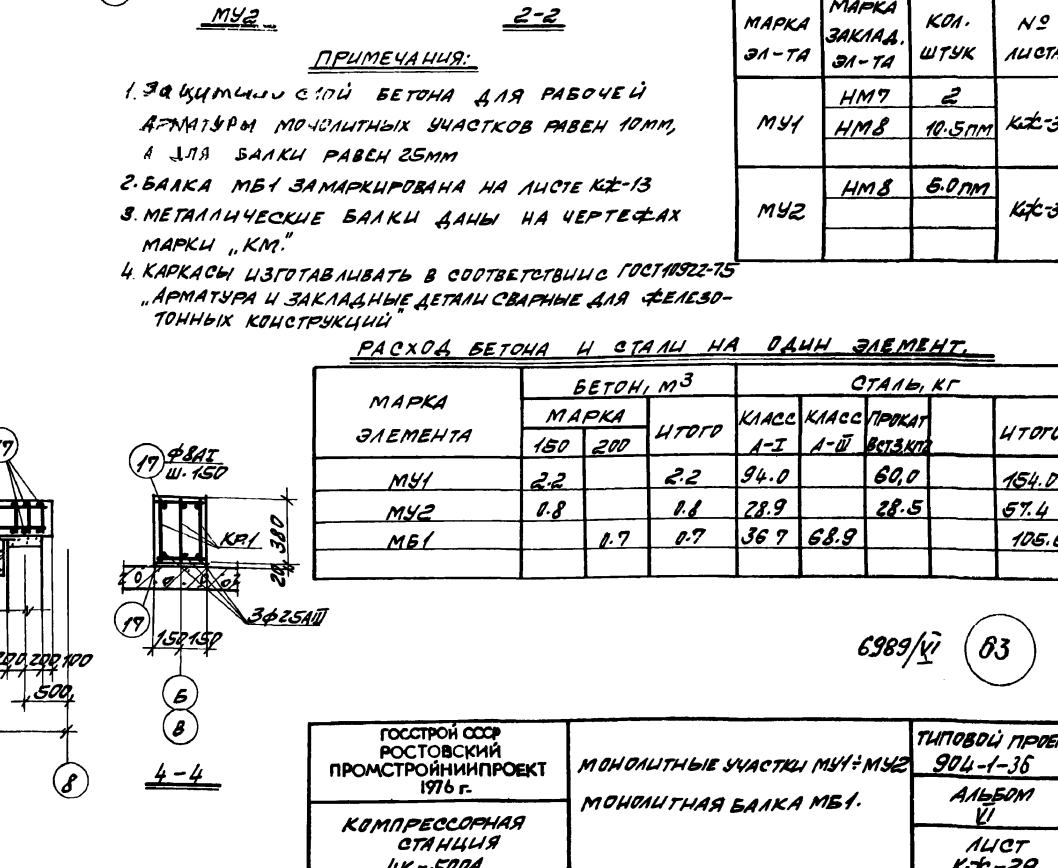 МУ2
2-2
ПРИМЕЧАНИЯ:
1. ЗАЩИТНЫЙ СЛОЙ БЕТОНА ДЛЯ РАБОЧЕЙ
АРМАТУРЫ МОНОЛИТНЫХ УЧАСТКОВ РАВЕН 10ММ,
А ДЛЯ БАЛКИ РАВЕН 25ММ
2. БАЛКА МБ1 ЗАМАРКИРОВАНА НА ЛИСТЕ КЖ-13
3. МЕТАЛЛИЧЕСКИЕ БАЛКИ ДАНЫ НА ЧЕРТЕЖАХ
МАРКИ „КМ."
4. КАРКАСЫ ИЗГОТАВЛИВАТЬ В СООТВЕТСТВИИ С ГОСТ10922-75
„АРМАТУРА И ЗАКЛАДНЫЕ ДЕТАЛИ СВАРНЫЕ ДЛЯ ЖЕЛЕЗО-
ТОННЫХ КОНСТРУКЦИЙ"
МАРКА ЭЛ-ТА МАРКА ЗАКЛАД. ЭЛ-ТА КОЛ. ШТУК № ЛИСТА
МУ1 НМ7 2 КЖ-3
НМ8 10.5ПМ
МУ2 НМ8 6.0ПМ КЖ-3
РАСХОД БЕТОНА И СТАЛИ НА ОДИН ЭЛЕМЕНТ.
МАРКА ЭЛЕМЕНТА БЕТОН, М3 СТАЛЬ, КГ
МАРКА ИТОГО КЛАСС А-I КЛАСС А-III ПРОКАТ ВСТ3КП2 ИТОГО
150 200
МУ1 2.2 2.2 94.0 60,0 154.0
МУ2 0.8 0.8 28.9 28.5 57.4
МБ1 0.7 0.7 36 7 68.9 105.6
17
17 Ф8АI
Ш.150
КР1
380
20
3Ф25АIII
17
150 150
Б
В
4-4
200 200 100
500
8
6989/VI I
63
ГОССТРОЙ СССР
РОСТОВСКИЙ
ПРОМСТРОЙНИИПРОЕКТ
1976 г.
КОМПРЕССОРНАЯ
СТАНЦИЯ
4К-500А
МОНОЛИТНЫЕ УЧАСТКИ МУ1÷МУ2
МОНОЛИТНАЯ БАЛКА МБ1.
ТИПОВОЙ ПРОЕ
904-1-36
АЛЬБОМ
VI
ЛИСТ
КЖ-29